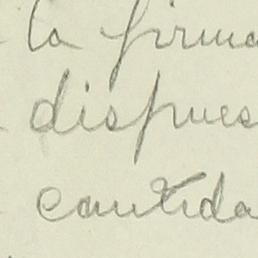 la firma
dispues
cantida